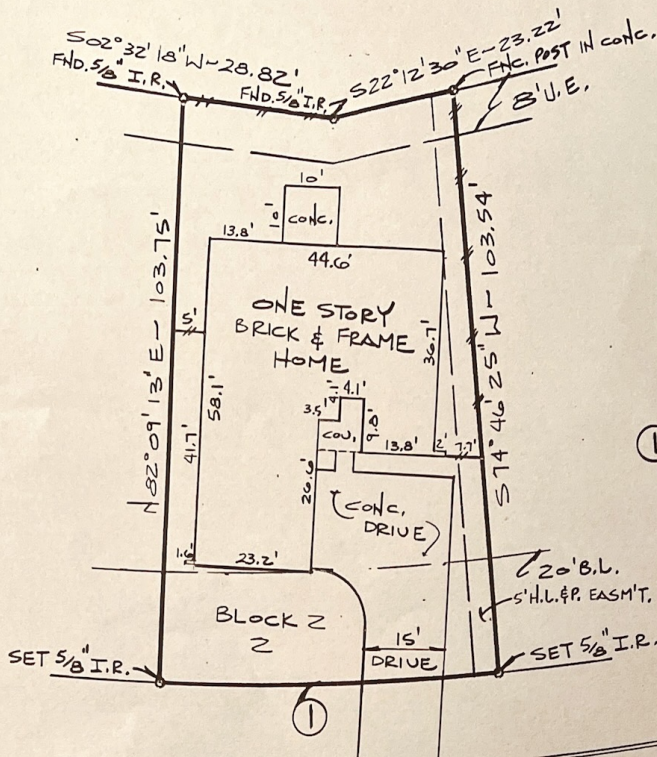 S02°32'18"W-28.82'
FND. 5/8" I.R.
FND. 5/8" I.R.
S22°12'30"E-23.22'
FNC. POST IN CONC.
8' U.E.
10'
10'
CONC.
13.8'
44.6'
N82°09'13"E-103.75'
5'
ONE STORY
BRICK & FRAME
HOME
36.7'
S74°46'25"W-103.54'
58.1'
41.7'
4.1'
3.5'
COV.
9.8'
13.8'
2'
7.7'
26.6'
CONC.
DRIVE
1.6'
23.2'
20' B.L.
5' H.L.&P. EASM'T.
BLOCK 2
2
15'
DRIVE
SET 5/8" I.R.
SET 5/8" I.R.
1